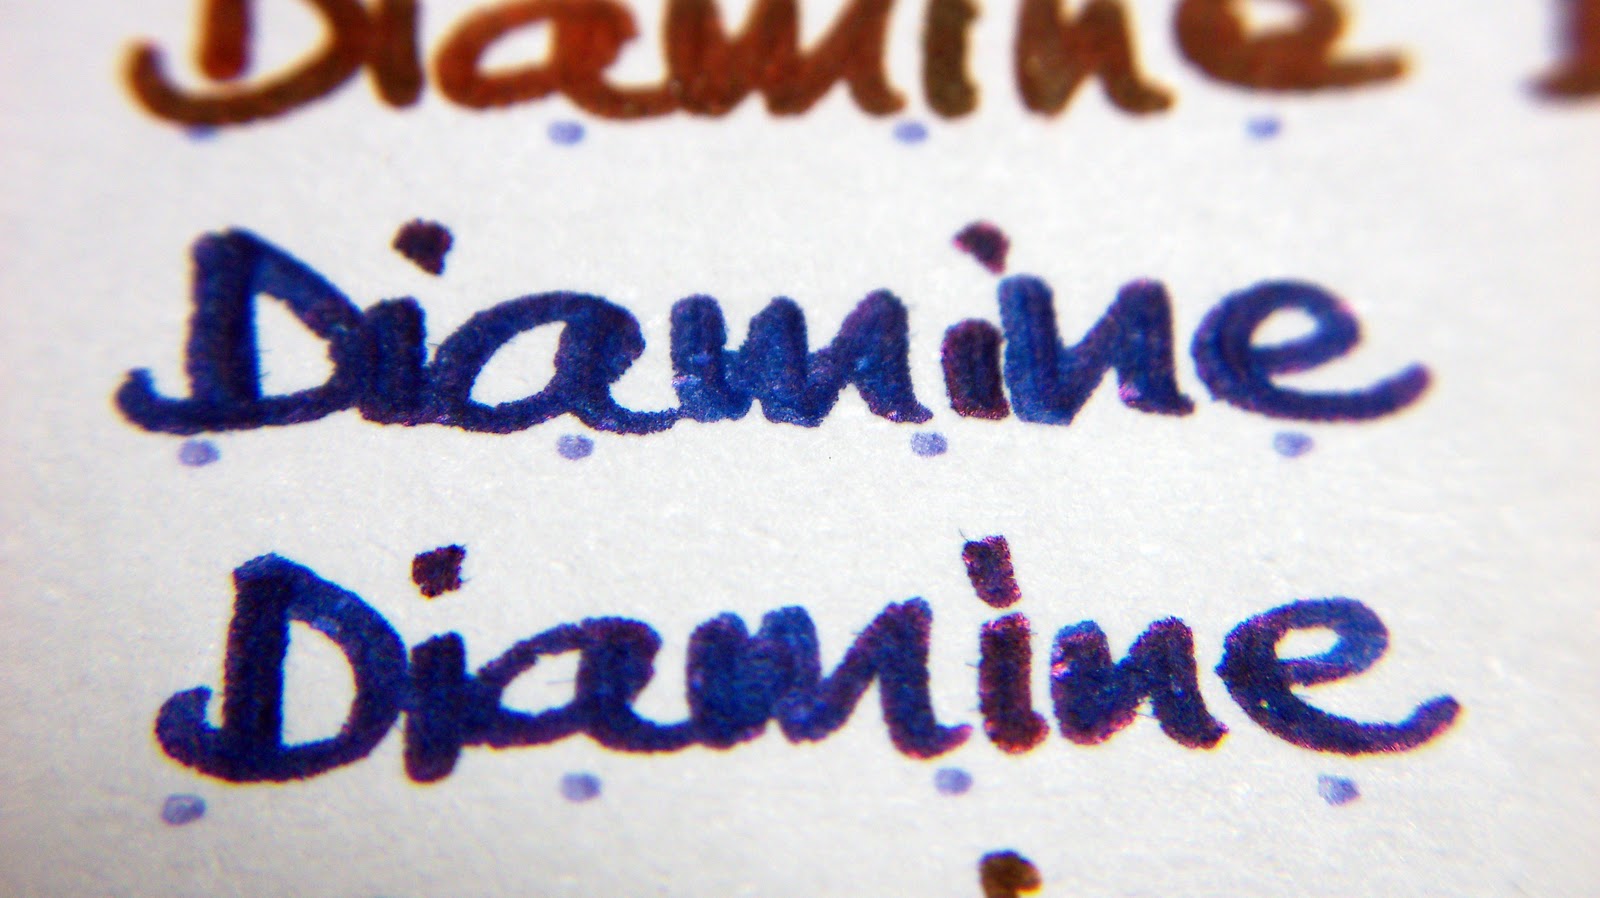 Diamine
Diamine
Diamine